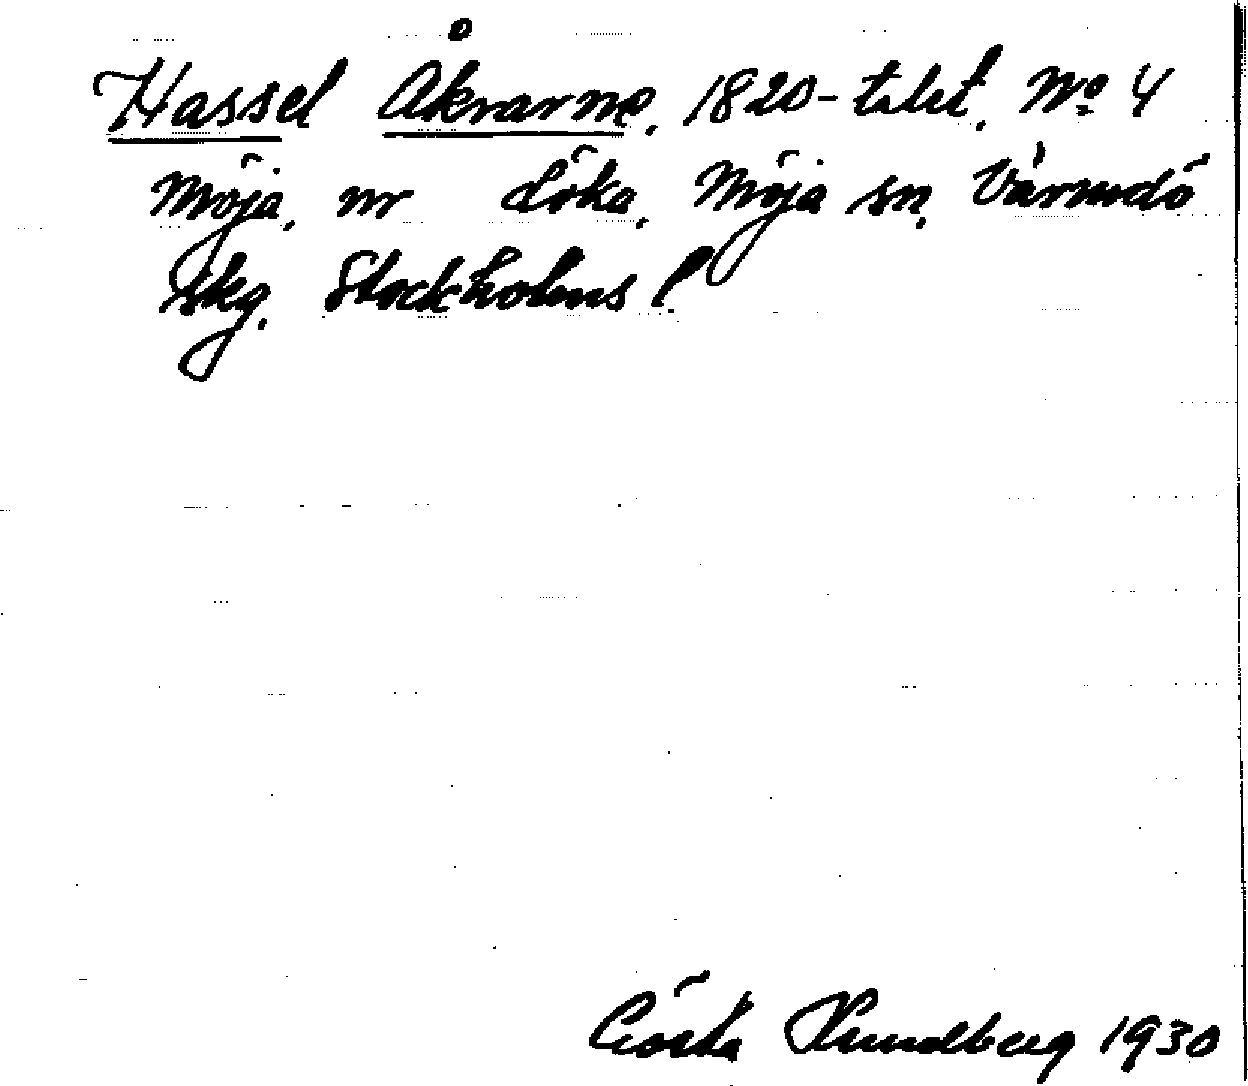 Hassel Åkrarne, 1820-talet, No 4
Möja, nr Löka, Möja sn, Värmdö
skg, Stockholms l.
Gösta Lundberg 1930